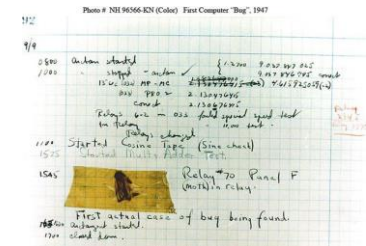 Photo # NH 96566-KN (Color) First Computer "Bug", 1947
92
9/9
0800 antan started
1000 " stopped - antan ✓
13'uc (032) MP-MC
033 PRO 2 2.130476415
correct 2.130676415
Relays 6-2 in 033 failed special speed test
in Relay " test.
Relays changed
1100 Started Cosine Tape (Sine check)
1525 Started Multi Adder Test.
1545 Relay #70 Panel F
(moth) in relay.
First actual case of bug being found.
antangent started.
1700 closed down.